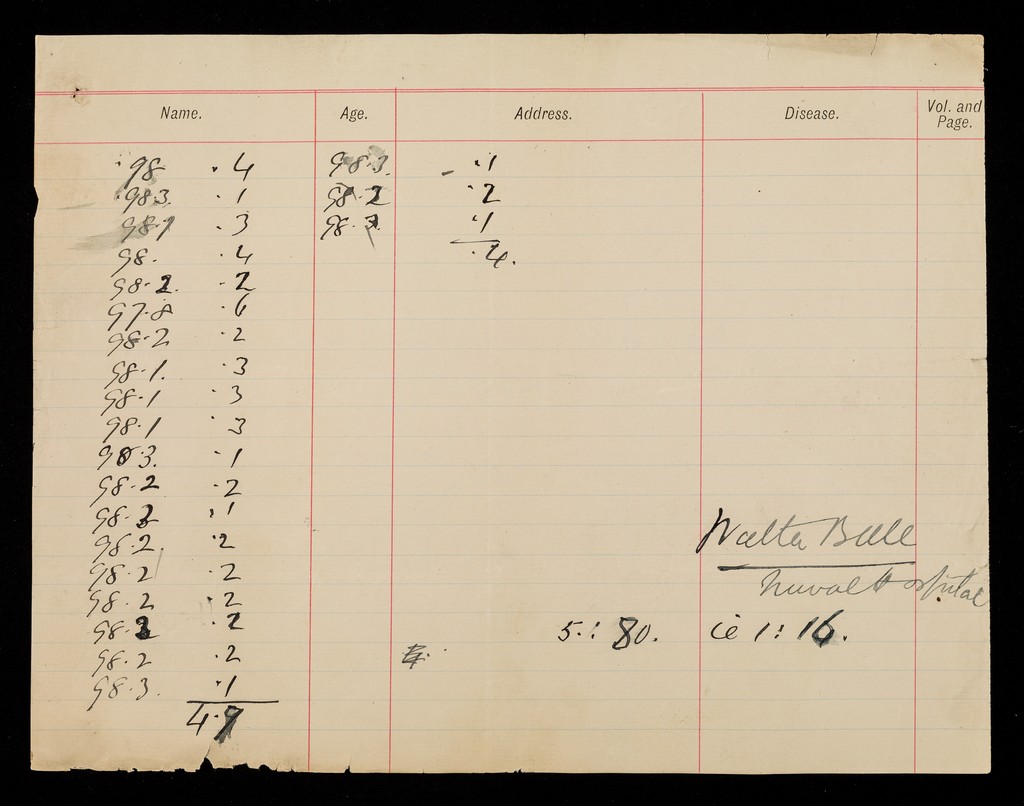 Name. Age. Address. Disease. Vol. and Page.
98 ·4 98·3. ·1
98·3. ·1 98·2 ·2
98·1 ·3 98·3. ·1
98. ·4 ·4.
98·2. ·2
97·8 ·6
98·2 ·2
98·1. ·3
98·1 ·3
98·1 ·3
98·3. ·1
98·2 ·2
98·3 ·1
98·2. ·2
98·2 ·2
98·2 ·2
98·2 ·2
98·2 ·2
98·3. ·1
4·9
Walter Bull
Naval Hospital
5·: 80. ie 1: 16.